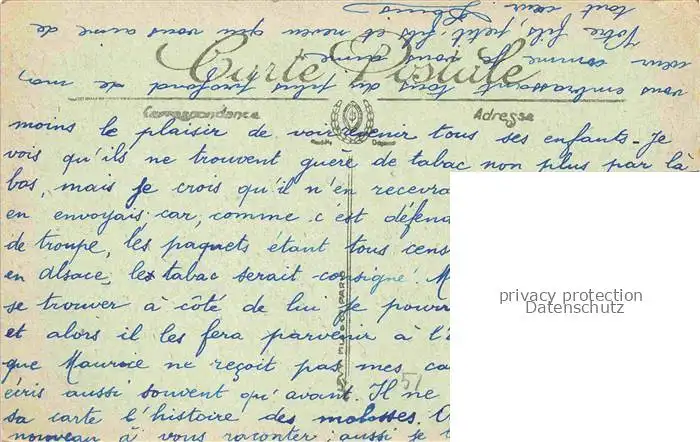 Carte Postale
Correspondance
Adresse
moins le plaisir de voir revenir tous ses enfants - Je
vois qu'ils ne trouvent guère de tabac non plus par là
bas, mais je crois qu'il n'en recevra
en envoyais car, comme c'est défen
de troupe, les paquets étant tous cens
en alsace, le tabac serait consigné.
se trouver à côté de lui je pourr
et alors il les fera parvenir à l'
que Maurice ne reçoit pas mes ca
écris aussi souvent qu'avant. Il ne
sa carte l'histoire des molosses.
nouveau à vous raconter; aussi je
vous embrassant tous du plus profond de mon
cœur comme je vous aime
Votre fils, petit-fils et neveu qui vous aime de
tout cœur
51
privacy protection
Datenschutz